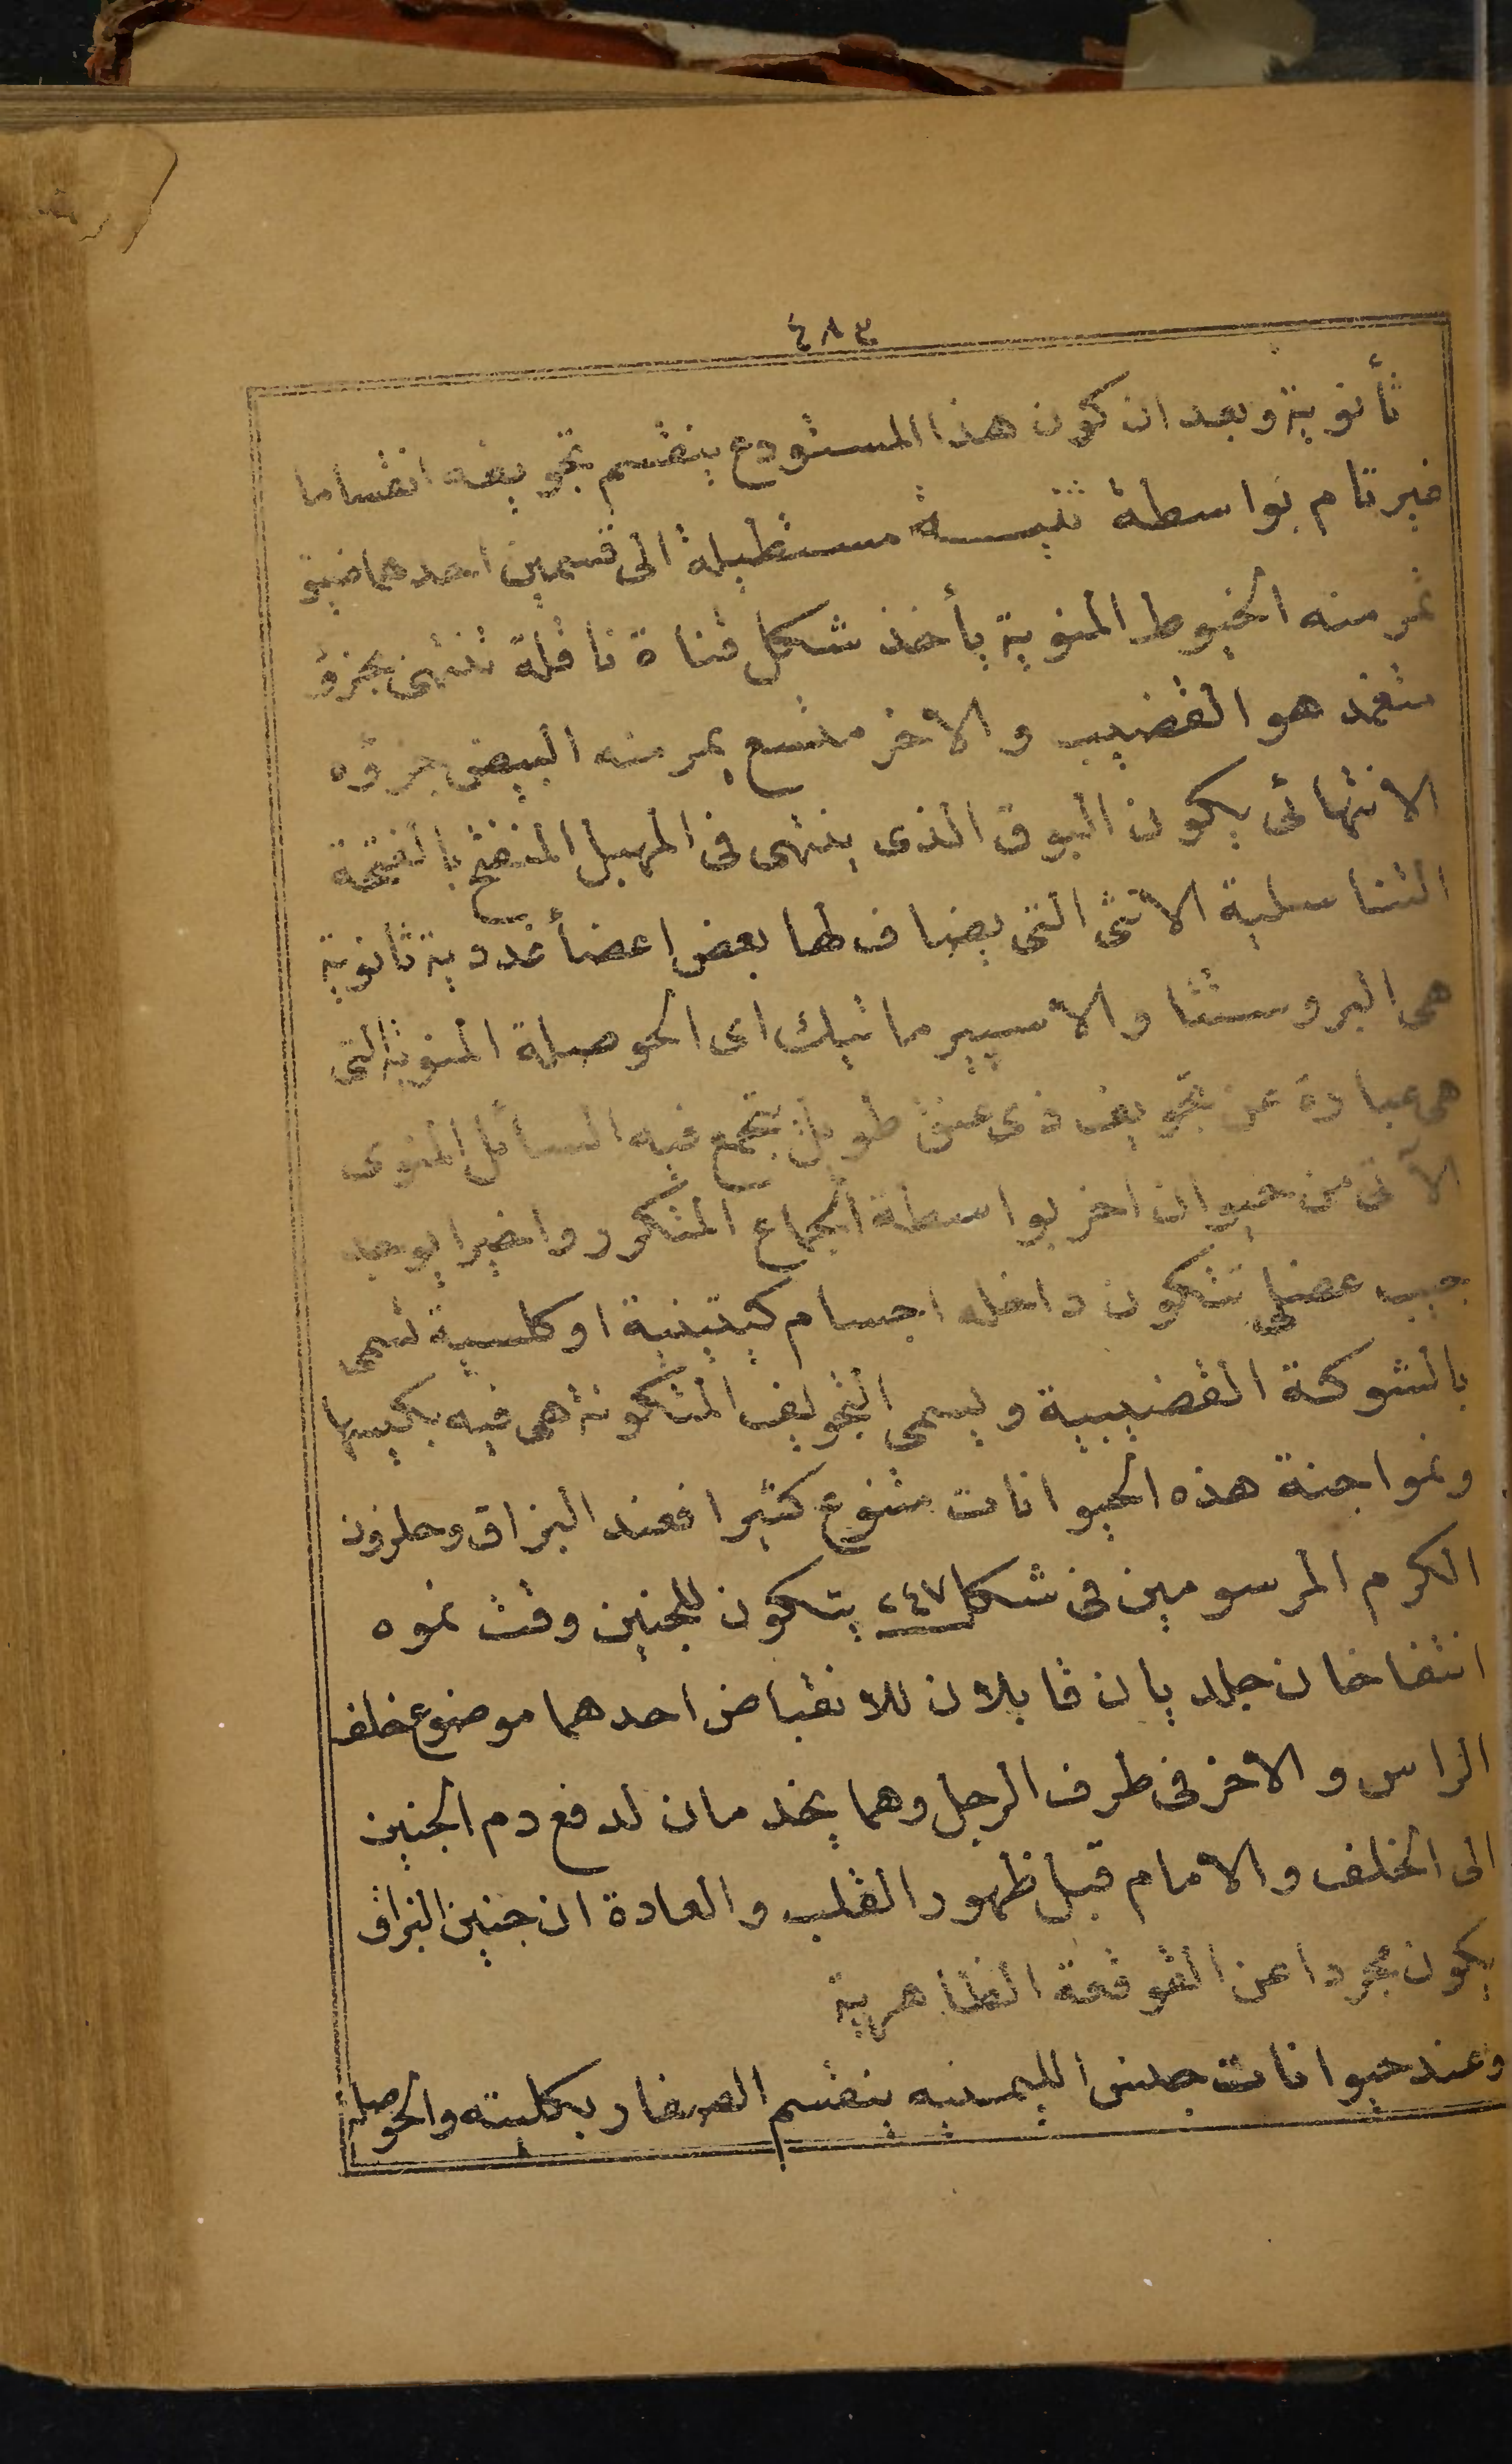 ٤٨٣
ثأنوية وبعد ان كون هذا المستودع ينقسم تجويفه انقساما
غير تام بواسطة ثنيـــة مستطيلة الى قسمين احدهما ضيق
تمر منه الخيوط المنوية يأخذ شكل قناة ناقلة تنتهى بجزؤ
منغمد هو القضيب والاخر متسع يمر منه البيض جزؤه
الانتهائى يكون البوق الذى ينتهى فى المهبل المنفتح بالفتحة
التناسلية الانثى التى يضاف لها بعض اعضأ غددية ثانوية
هى البروستتا والاسپيرماتيك اى الحوصلة المنوية التى
هى عبارة عن تجويف ذى عنق طويل يتجمع فيه السائل المنوى
الآتى من حيوان اخر بواسطة الجماع المتكرر واخيرا يوجد
جيب عضلى تتكون داخله اجسام كيتينية او كلسية تسمى
بالشوكة القضيبية ويسمى التجويف المتكونة هى فيه بكيسها
ونمو اجنة هذه الحيوانات متنوع كثيرا فعند البزاق وحلزون
الكرم المرسومين فى شكل ٢٤٧ يتكون للجنين وقت نموه
انتفاخان جلديان قابلان للانقباض احدهما موضوع خلف
الراس والاخر فى طرف الرجل وهما يخدمان لدفع دم الجنين
الى الخلف والامام قبل ظهور القلب والعادة ان جنين البزاق
يكون مجردا عن القوقعة الظاهرية
وعند حيوانات جنس الليمنيه ينقسم الصفار بكليته والحوصلة